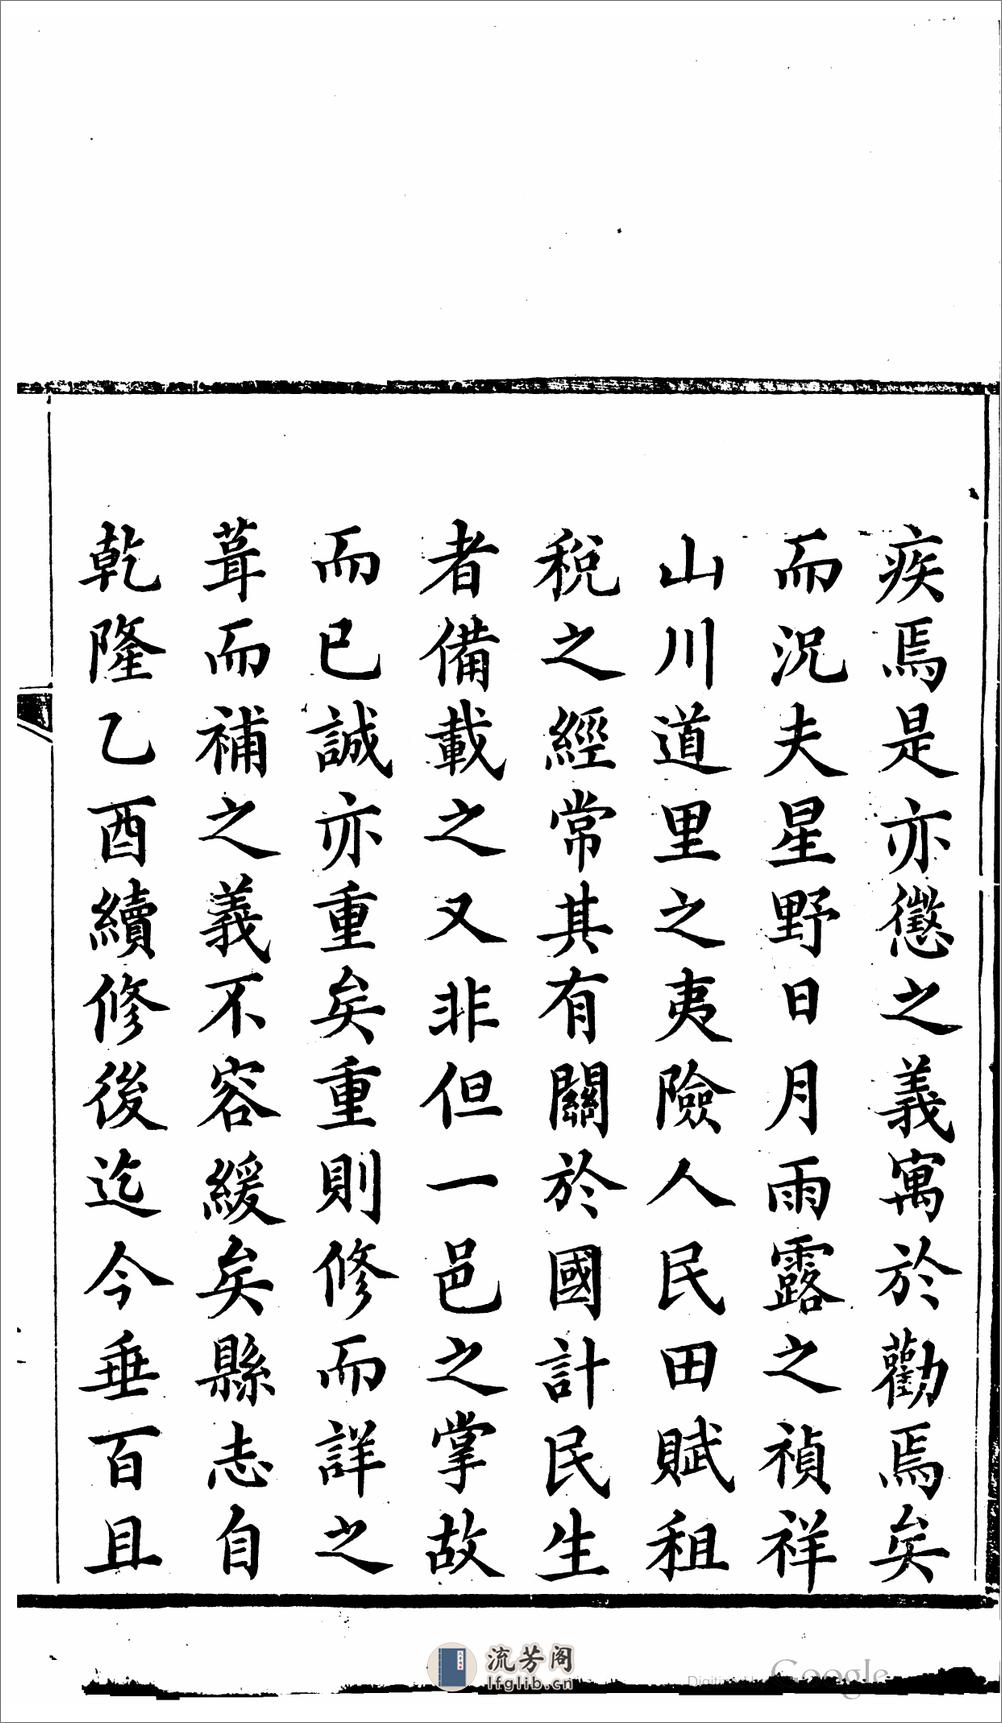 疾焉是亦懲之義寓於勸焉矣
而況夫星野日月雨露之禎祥
山川道里之夷險人民田賦租
稅之經常其有關於國計民生
者備載之又非但一邑之掌故
而已誠亦重矣重則修而詳之
葺而補之義不容緩矣縣志自
乾隆乙酉續修後迄今垂百且
流芳阁
lfglib.cn
Digitized by Google